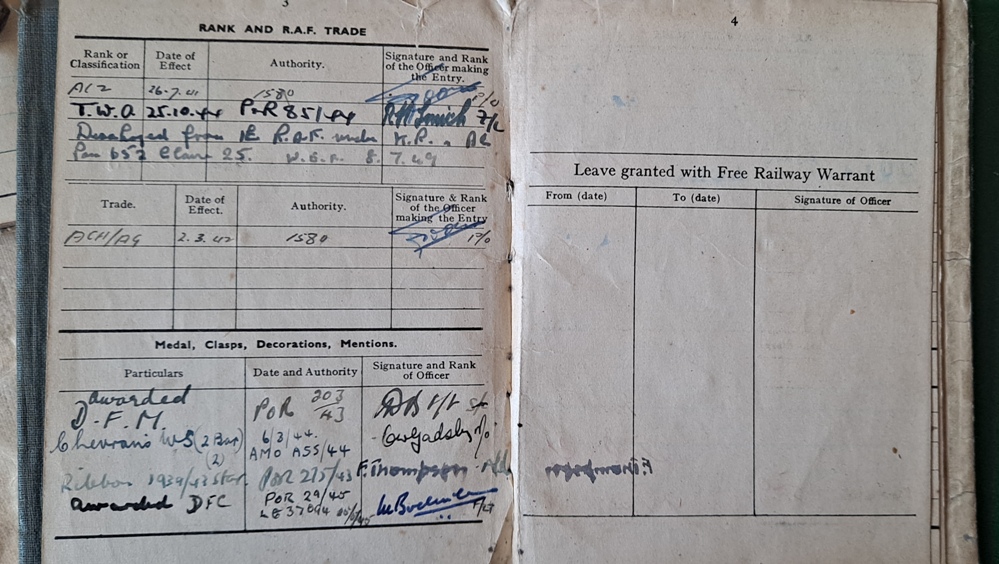 3
RANK AND R.A.F. TRADE
Rank or Classification Date of Effect Authority. Signature and Rank of the Officer making the Entry.
AC2 26.7.41 1580 P/O
T.W.O. 25.10.44 PoR 85/44 F/L
Discharged from the R.A.F. under K.R. & AC
Para 652 Clause 25. W.E.F. 8.7.49
Trade. Date of Effect. Authority. Signature & Rank of the Officer making the Entry
ACH/AG 2.3.42 1580 P/O
Medal, Clasps, Decorations, Mentions.
Particulars Date and Authority Signature and Rank of Officer
awarded
D.F.M. POR 203/43
Chevrons WS (2 Bar) 6/3/44.
(2) AMO A55/44
Ribbon 1939/43 Star. POR 215/43 F. Thompson
awarded DFC POR 29/45
F/Lt
4
Leave granted with Free Railway Warrant
From (date) To (date) Signature of Officer